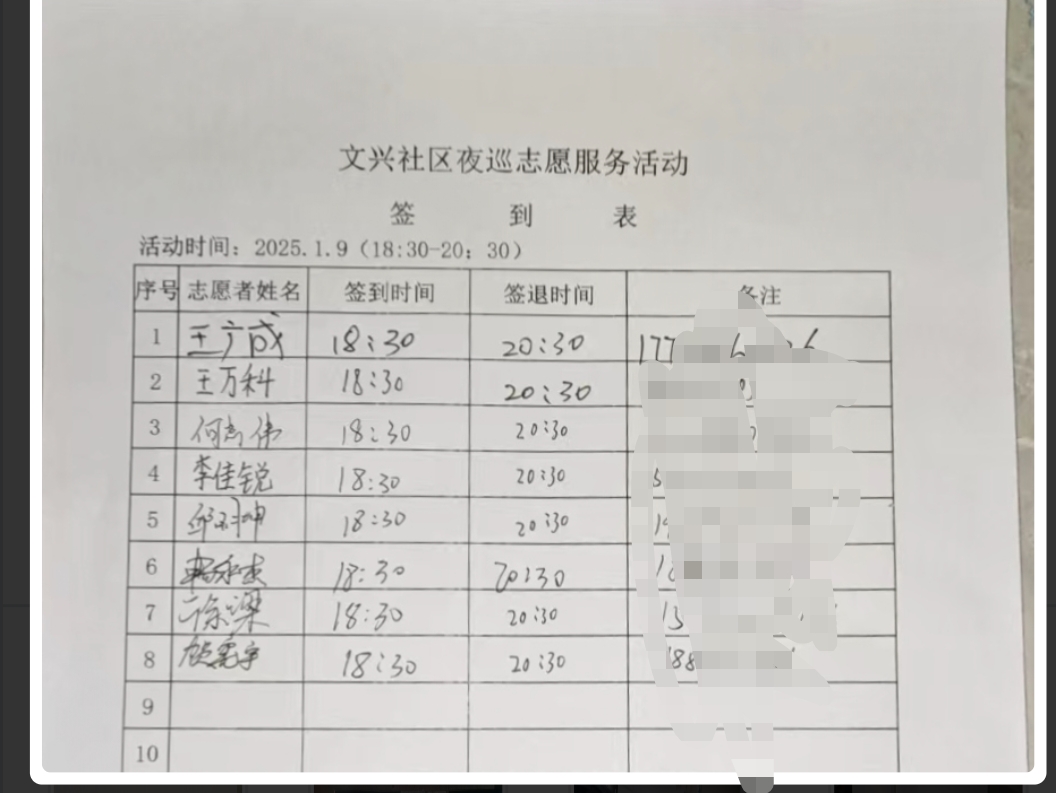 文兴社区夜巡志愿服务活动
签 到 表
活动时间：2025.1.9（18:30-20：30）
序号 志愿者姓名 签到时间 签退时间 备注
1 王广成 18:30 20:30 177
2 王万科 18:30 20:30
3 何志伟 18:30 20:30
4 李佳锐 18:30 20:30
5 18:30 20:30
6 18:30 20:30
7 徐梁 18:30 20:30
8 18:30 20:30 188
9
10